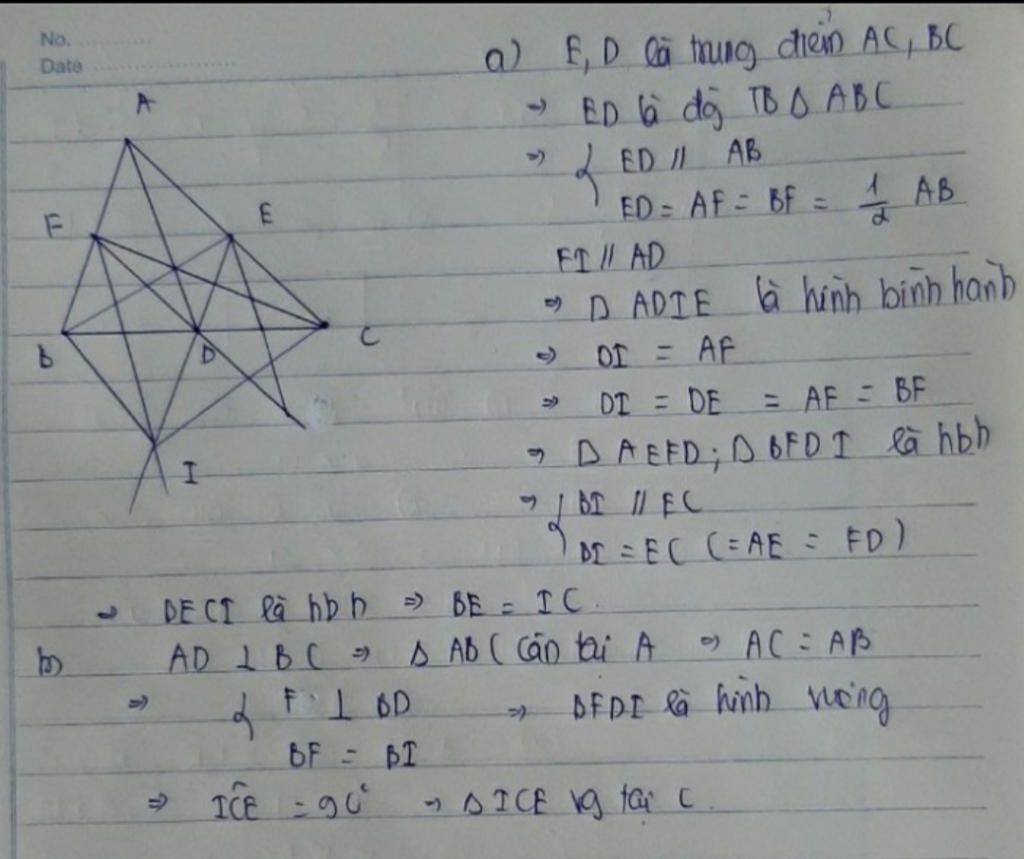 No.
Date
a) E, D là trung điểm AC, BC
⇒ ED là đg TB Δ ABC
⇒ { ED // AB
ED = AF = BF = 1/2 AB
FI // AD
⇒ D ADIE là hình bình hành
⇒ DI = AF
⇒ DI = DE = AF = BF
⇒ D AEFD; D BFDI là hbh
⇒ { BI // EC
BI = EC (= AE = FD)
⇒ BECI là hbh ⇒ BE = IC.
b) AD ⊥ BC ⇒ Δ ABC cân tại A ⇒ AC = AB
⇒ { F ⊥ BD ⇒ BFDI là hình vuông
BF = BI
⇒ ICE = 90° ⇒ Δ ICE vg tại C.
A
F
E
B
D
C
I